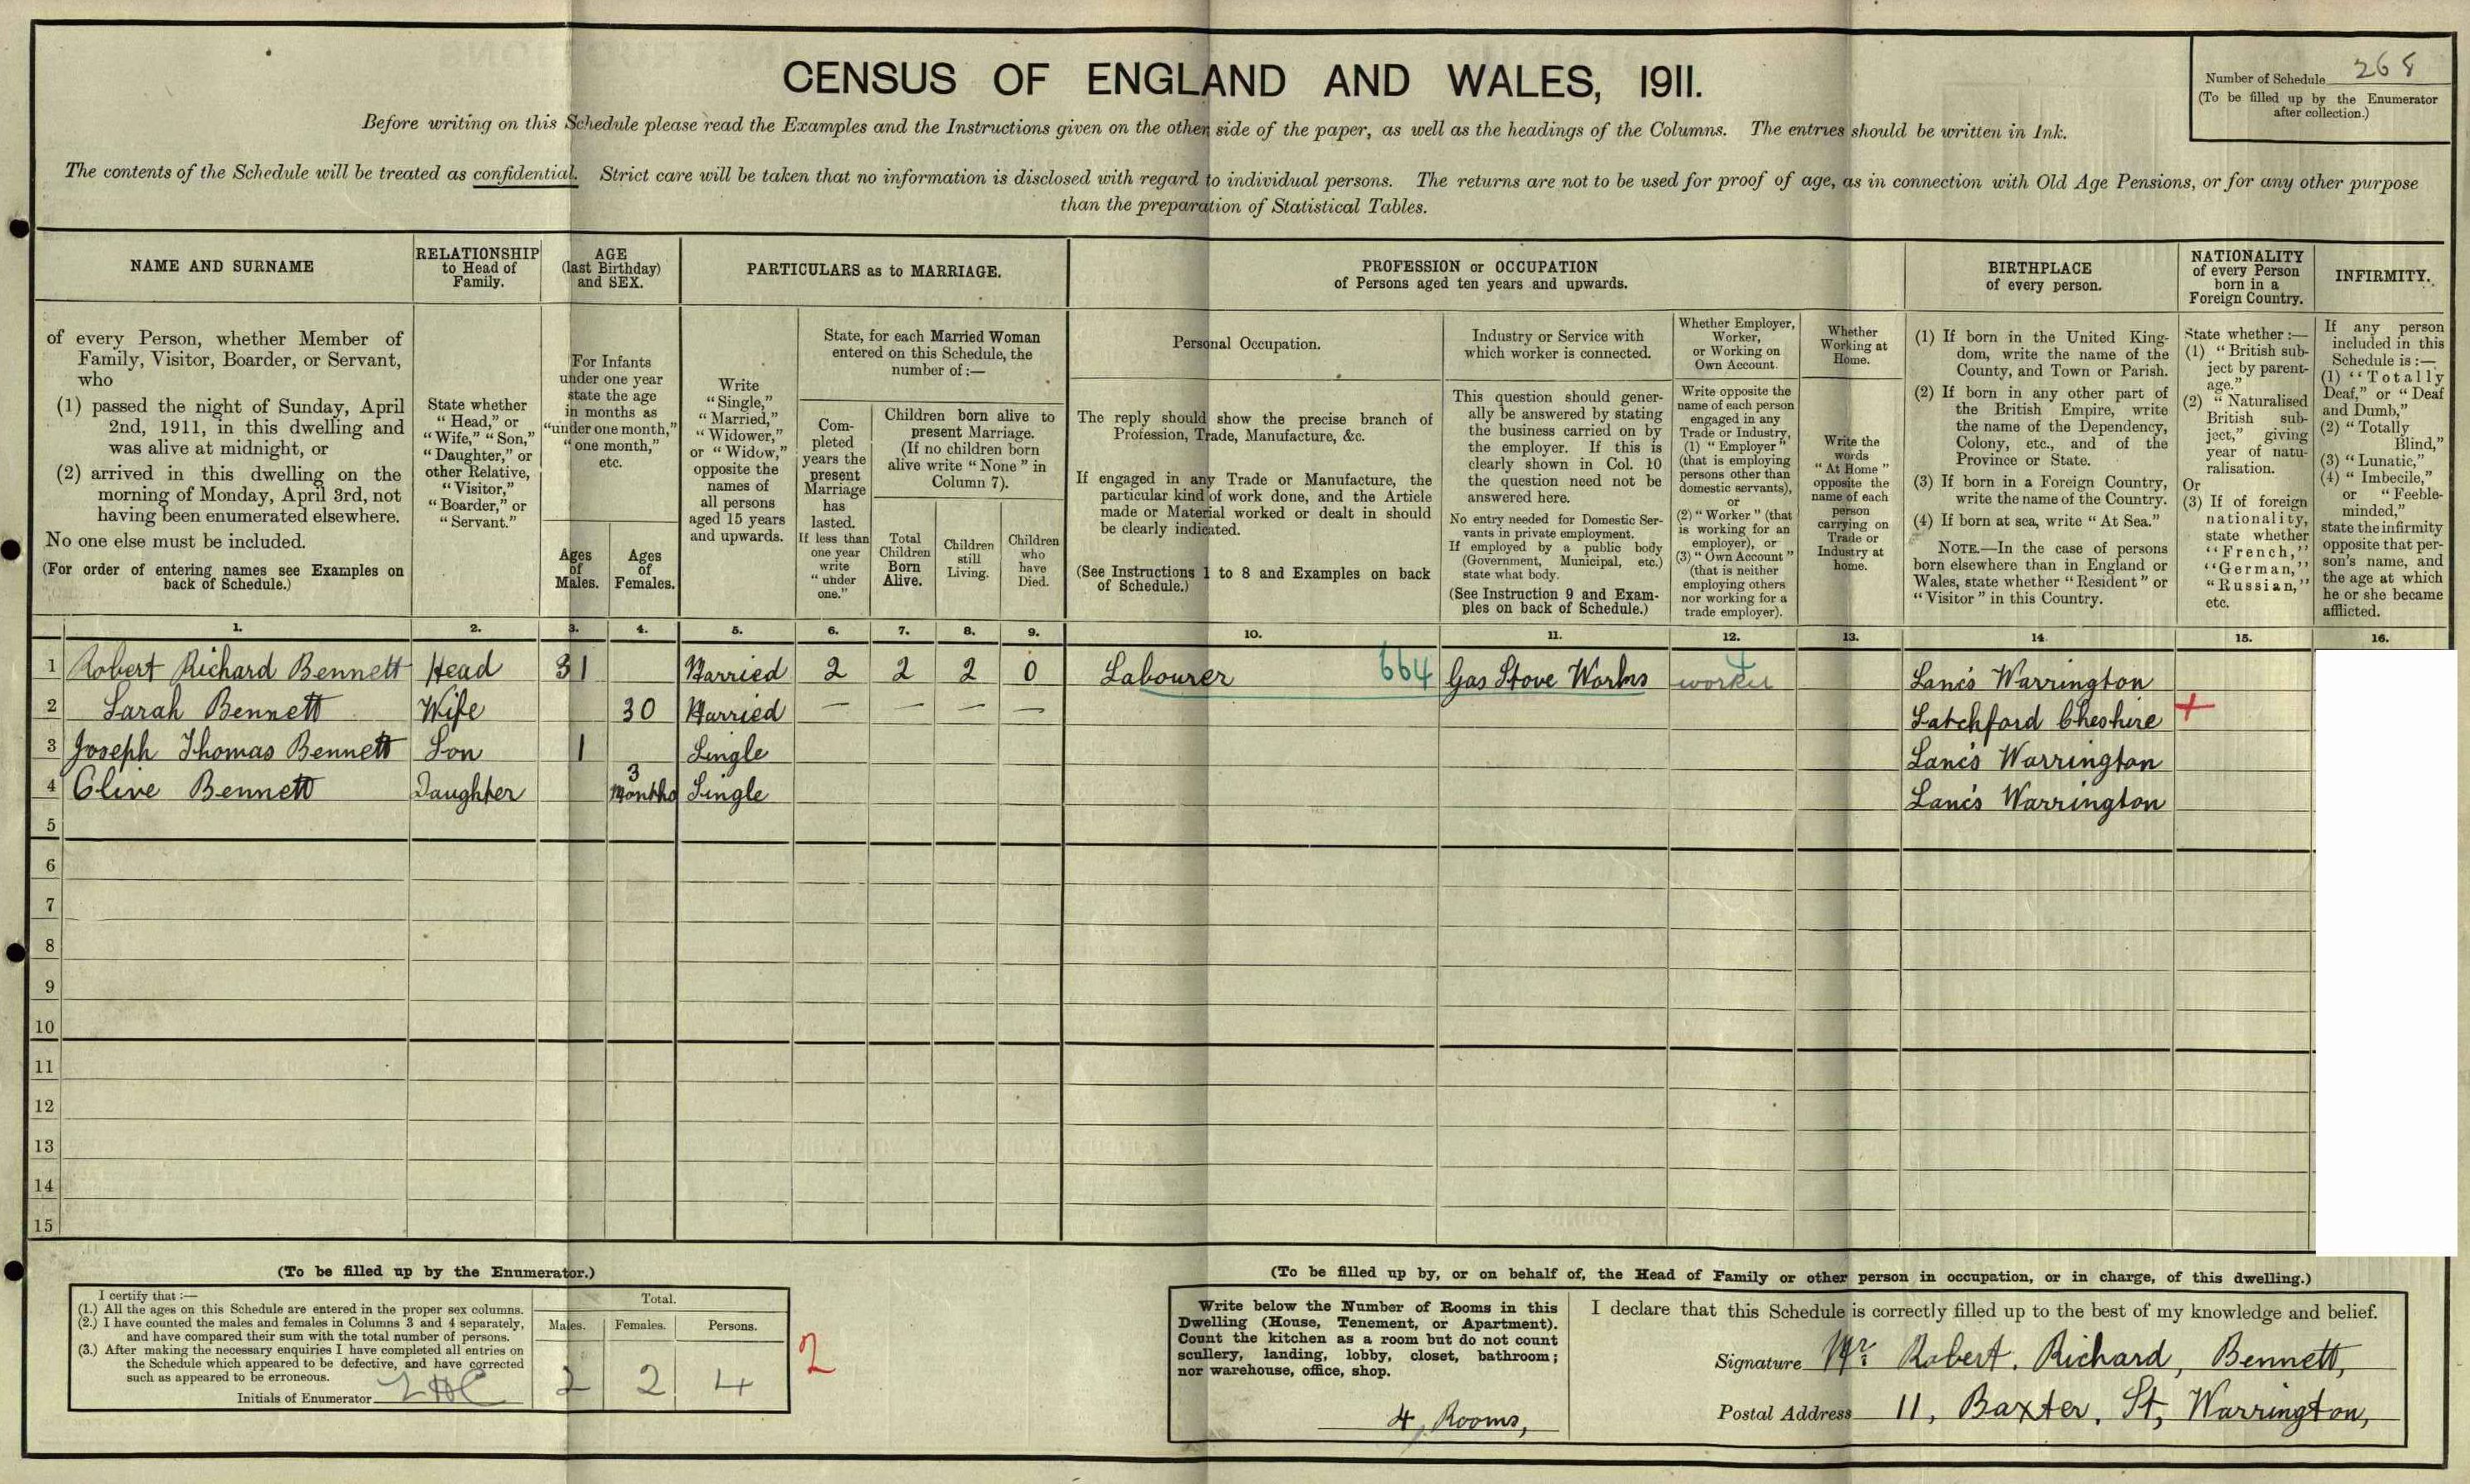 CENSUS OF ENGLAND AND WALES, 1911.
Number of Schedule 268
(To be filled up by the Enumerator
after collection.)
Before writing on this Schedule please read the Examples and the Instructions given on the other side of the paper, as well as the headings of the Columns. The entries should be written in Ink.
The contents of the Schedule will be treated as confidential. Strict care will be taken that no information is disclosed with regard to individual persons. The returns are not to be used for proof of age, as in connection with Old Age Pensions, or for any other purpose
than the preparation of Statistical Tables.
NAME AND SURNAME
of every Person, whether Member of
Family, Visitor, Boarder, or Servant,
who
(1) passed the night of Sunday, April
2nd, 1911, in this dwelling and
was alive at midnight, or
(2) arrived in this dwelling on the
morning of Monday, April 3rd, not
having been enumerated elsewhere.
No one else must be included.
(For order of entering names see Examples on
back of Schedule.)
RELATIONSHIP
to Head of
Family.
State whether
"Head," or
"Wife," "Son,"
"Daughter," or
other Relative,
"Visitor,"
"Boarder," or
"Servant."
AGE
(last Birthday)
and SEX.
For Infants
under one year
state the age
in months as
"under one month,"
"one month,"
etc.
Ages
of
Males.
Ages
of
Females.
PARTICULARS as to MARRIAGE.
Write
"Single,"
"Married,"
"Widower,"
or "Widow,"
opposite the
names of
all persons
aged 15 years
and upwards.
State, for each Married Woman
entered on this Schedule, the
number of:—
Com-
pleted
years the
present
Marriage
has
lasted.
If less than
one year
write
"under
one."
Children born alive to
present Marriage.
(If no children born
alive write "None" in
Column 7).
Total
Children
Born
Alive.
Children
still
Living.
Children
who
have
Died.
PROFESSION or OCCUPATION
of Persons aged ten years and upwards.
Personal Occupation.
The reply should show the precise branch of
Profession, Trade, Manufacture, &c.
If engaged in any Trade or Manufacture, the
particular kind of work done, and the Article
made or Material worked or dealt in should
be clearly indicated.
(See Instructions 1 to 8 and Examples on back
of Schedule.)
Industry or Service with
which worker is connected.
This question should gener-
ally be answered by stating
the business carried on by
the employer. If this is
clearly shown in Col. 10
the question need not be
answered here.
No entry needed for Domestic Ser-
vants in private employment.
If employed by a public body
(Government, Municipal, etc.)
state what body.
(See Instruction 9 and Exam-
ples on back of Schedule.)
Whether Employer,
Worker,
or Working on
Own Account.
Write opposite the
name of each person
engaged in any
Trade or Industry,
(1) "Employer"
(that is employing
persons other than
domestic servants),
or
(2) "Worker" (that
is working for an
employer), or
(3) "Own Account"
(that is neither
employing others
nor working for a
trade employer).
Whether
Working at
Home.
Write the
words
"At Home"
opposite the
name of each
person
carrying on
Trade or
Industry at
home.
BIRTHPLACE
of every person.
(1) If born in the United King-
dom, write the name of the
County, and Town or Parish.
(2) If born in any other part of
the British Empire, write
the name of the Dependency,
Colony, etc., and of the
Province or State.
(3) If born in a Foreign Country,
write the name of the Country.
(4) If born at sea, write "At Sea."
NOTE.—In the case of persons
born elsewhere than in England or
Wales, state whether "Resident" or
"Visitor" in this Country.
NATIONALITY
of every Person
born in a
Foreign Country.
State whether:—
(1) "British sub-
ject by parent-
age."
(2) "Naturalised
British sub-
ject," giving
year of natu-
ralisation.
Or
(3) If of foreign
nationality,
state whether
"French,"
"German,"
"Russian,"
etc.
INFIRMITY.
If any person
included in this
Schedule is:—
(1) "Totally
Deaf," or "Deaf
and Dumb,"
(2) "Totally
Blind,"
(3) "Lunatic,"
(4) "Imbecile,"
or "Feeble-
minded,"
state the infirmity
opposite that per-
son's name, and
the age at which
he or she became
afflicted.
1. 2. 3. 4. 5. 6. 7. 8. 9. 10. 11. 12. 13. 14 15. 16.
1 Robert Richard Bennett Head 31 Married 2 2 2 0 Labourer 664 Gas Stove Works worker Lancs Warrington
2 Sarah Bennett Wife 30 Married — — — — Latchford Cheshire +
3 Joseph Thomas Bennett Son 1 Single Lancs Warrington
4 Olive Bennett Daughter 3 Months Single Lancs Warrington
5
6
7
8
9
10
11
12
13
14
15
(To be filled up by the Enumerator.)
I certify that:—
(1.) All the ages on this Schedule are entered in the proper sex columns.
(2.) I have counted the males and females in Columns 3 and 4 separately,
and have compared their sum with the total number of persons.
(3.) After making the necessary enquiries I have completed all entries on
the Schedule which appeared to be defective, and have corrected
such as appeared to be erroneous.
Initials of Enumerator
Total.
Males. Females. Persons.
2 2 4
2
(To be filled up by, or on behalf of, the Head of Family or other person in occupation, or in charge, of this dwelling.)
Write below the Number of Rooms in this
Dwelling (House, Tenement, or Apartment).
Count the kitchen as a room but do not count
scullery, landing, lobby, closet, bathroom;
nor warehouse, office, shop.
4, Rooms,
I declare that this Schedule is correctly filled up to the best of my knowledge and belief.
Signature Mr. Robert. Richard, Bennett,
Postal Address 11, Baxter. St, Warrington,